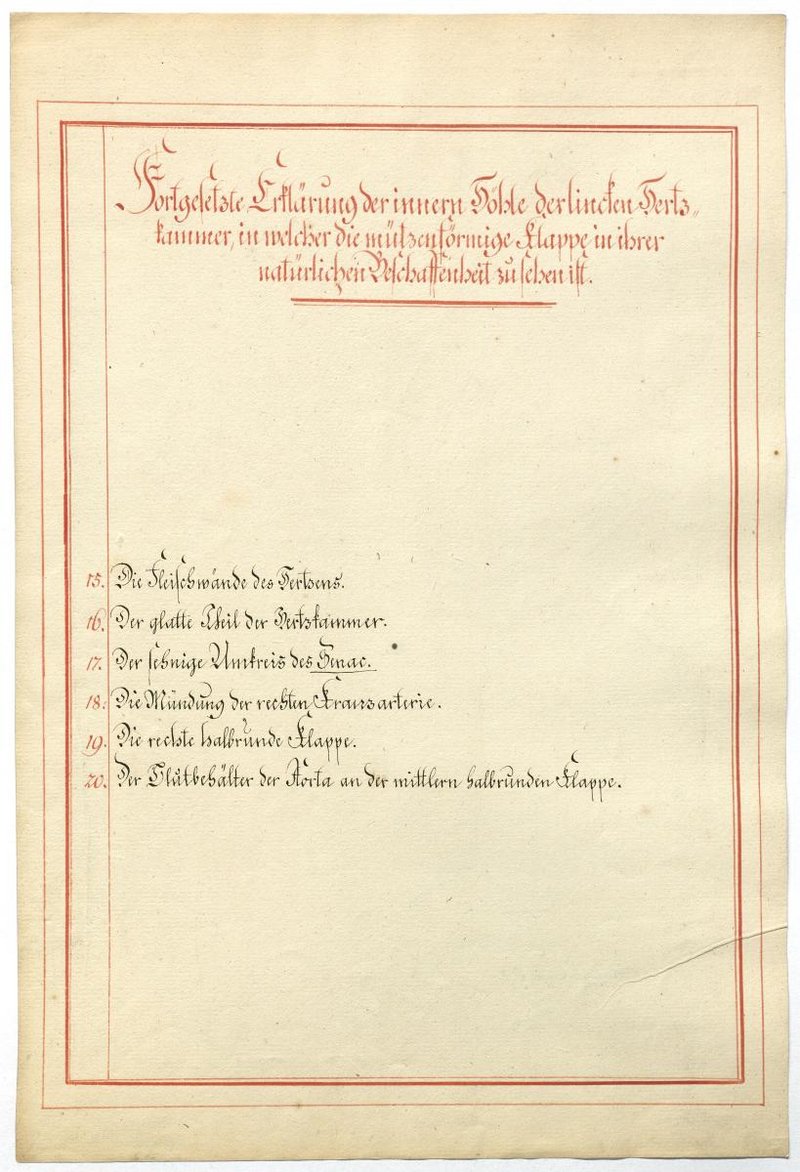 Fortgesetzte Erklärung der innern Höhle der lincken Hertz„
kammer, in welcher die mützenförmige Klappe in ihrer
natürlichen Beschaffenheit zu sehen ist.
15. Die Fleischwände des Hertzens.
16. Der glatte Theil der Hertzkammer.
17. Der sehnige Umkreis des Senac.
18. Die Mündung der rechten Kranzarterie.
19. Die rechte halbrunde Klappe.
20. Der Blutbehälter der Aorta an der mittlern halbrunden Klappe.